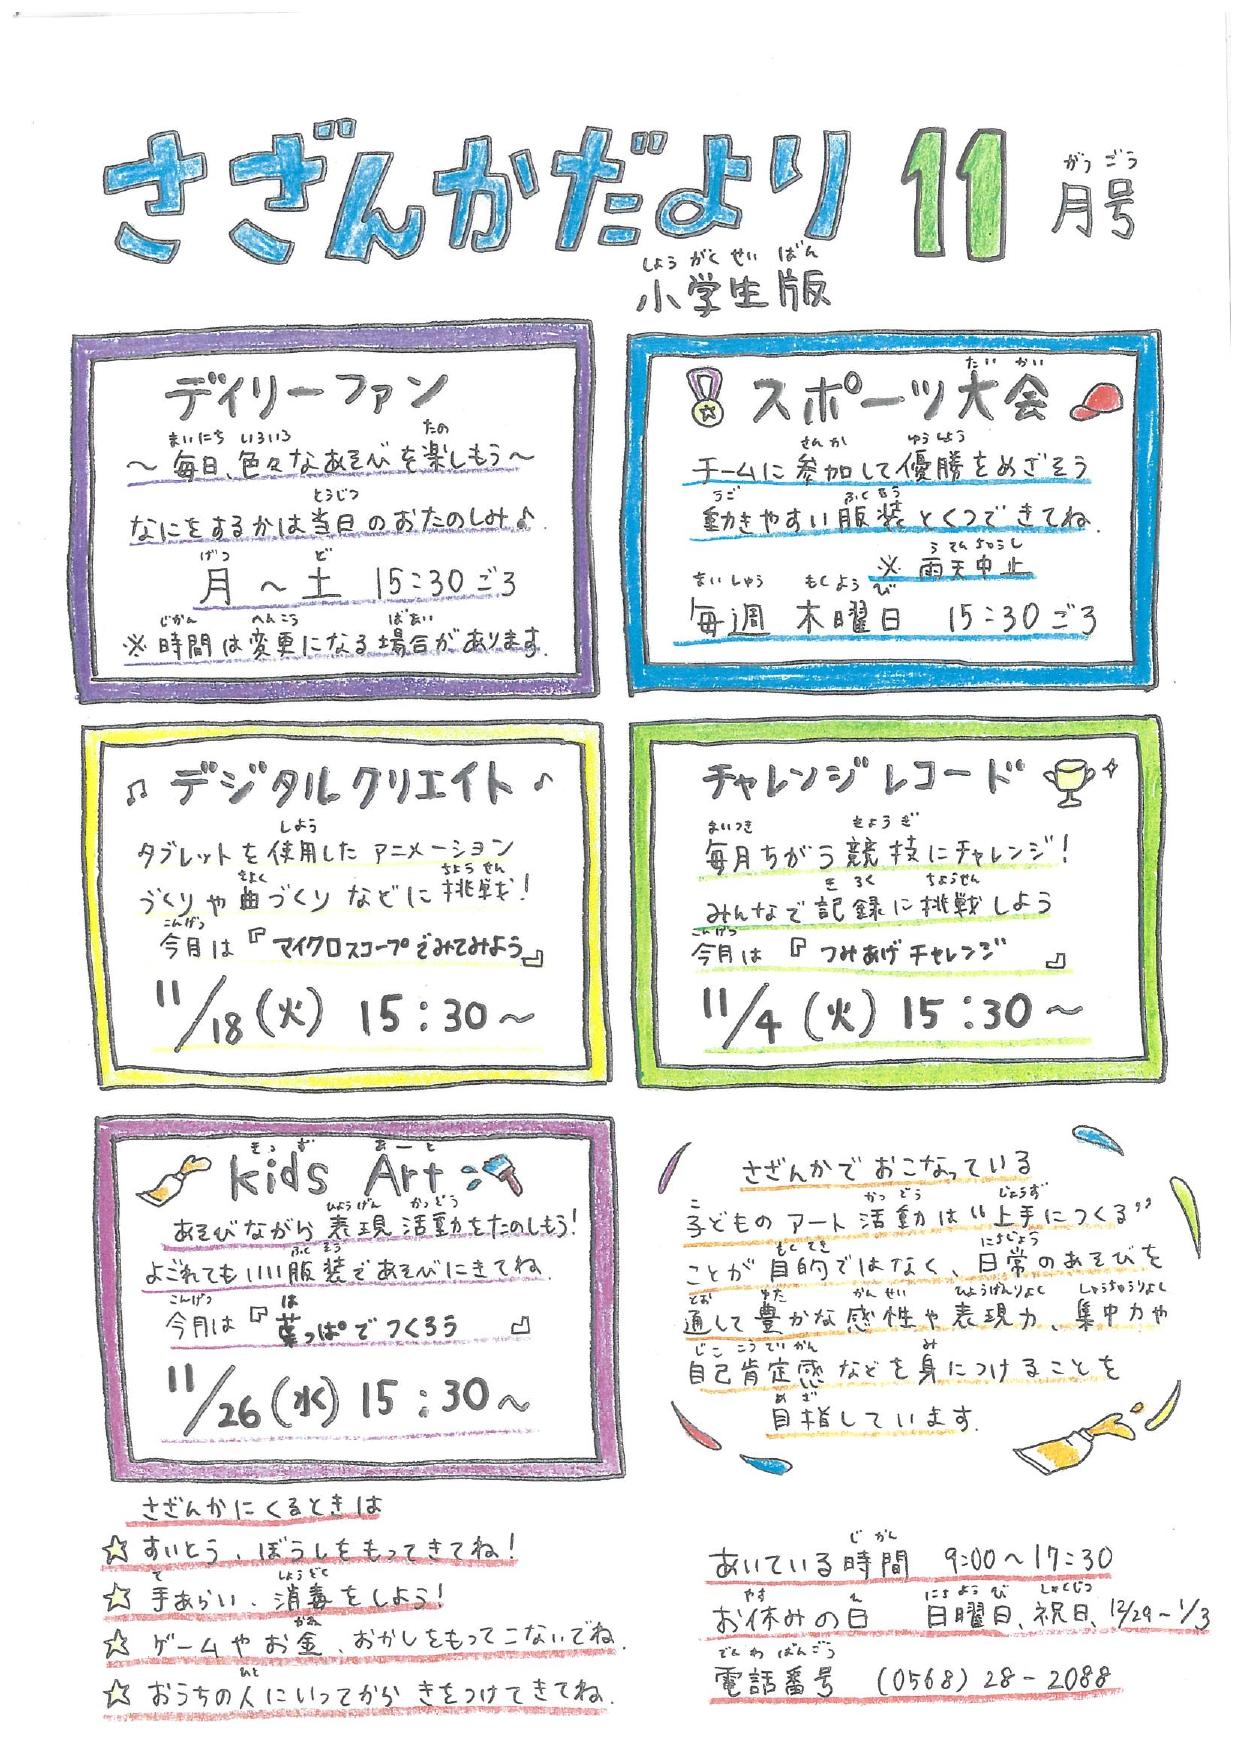 さざんかだより 11月号
小学生版
デイリーファン
～毎日、色々なあそびを楽しもう～
なにをするかは当日のおたのしみ♪
月～土 15:30ごろ
※時間は変更になる場合があります。
スポーツ大会
チームに参加して優勝をめざそう
動きやすい服装とくつできてね。
※雨天中止
毎週 木曜日 15:30ごろ
♫デジタルクリエイト♪
タブレットを使用したアニメーション
づくりや曲づくりなどに挑戦!
今月は『マイクロスコープでみてみよう』
11/18(火) 15:30～
チャレンジレコード
毎月ちがう競技にチャレンジ!
みんなで記録に挑戦しよう
今月は『つみあげチャレンジ』
11/4(火) 15:30～
kids Art
あそびながら表現活動をたのしもう!
よごれてもいい服装であそびにきてね。
今月は『葉っぱでつくろう』
11/26(水) 15:30～
さざんかでおこなっている
子どものアート活動は“上手につくる”
ことが目的ではなく、日常のあそびを
通して豊かな感性や表現力、集中力や
自己肯定感などを身につけることを
目指しています。
さざんかにくるときは
☆すいとう、ぼうしをもってきてね!
☆手あらい、消毒をしよう!
☆ゲームやお金、おかしをもってこないでね。
☆おうちの人にいってからきをつけてきてね。
あいている時間 9:00～17:30
お休みの日 日曜日、祝日、12/29～1/3
電話番号 (0568)28-2088